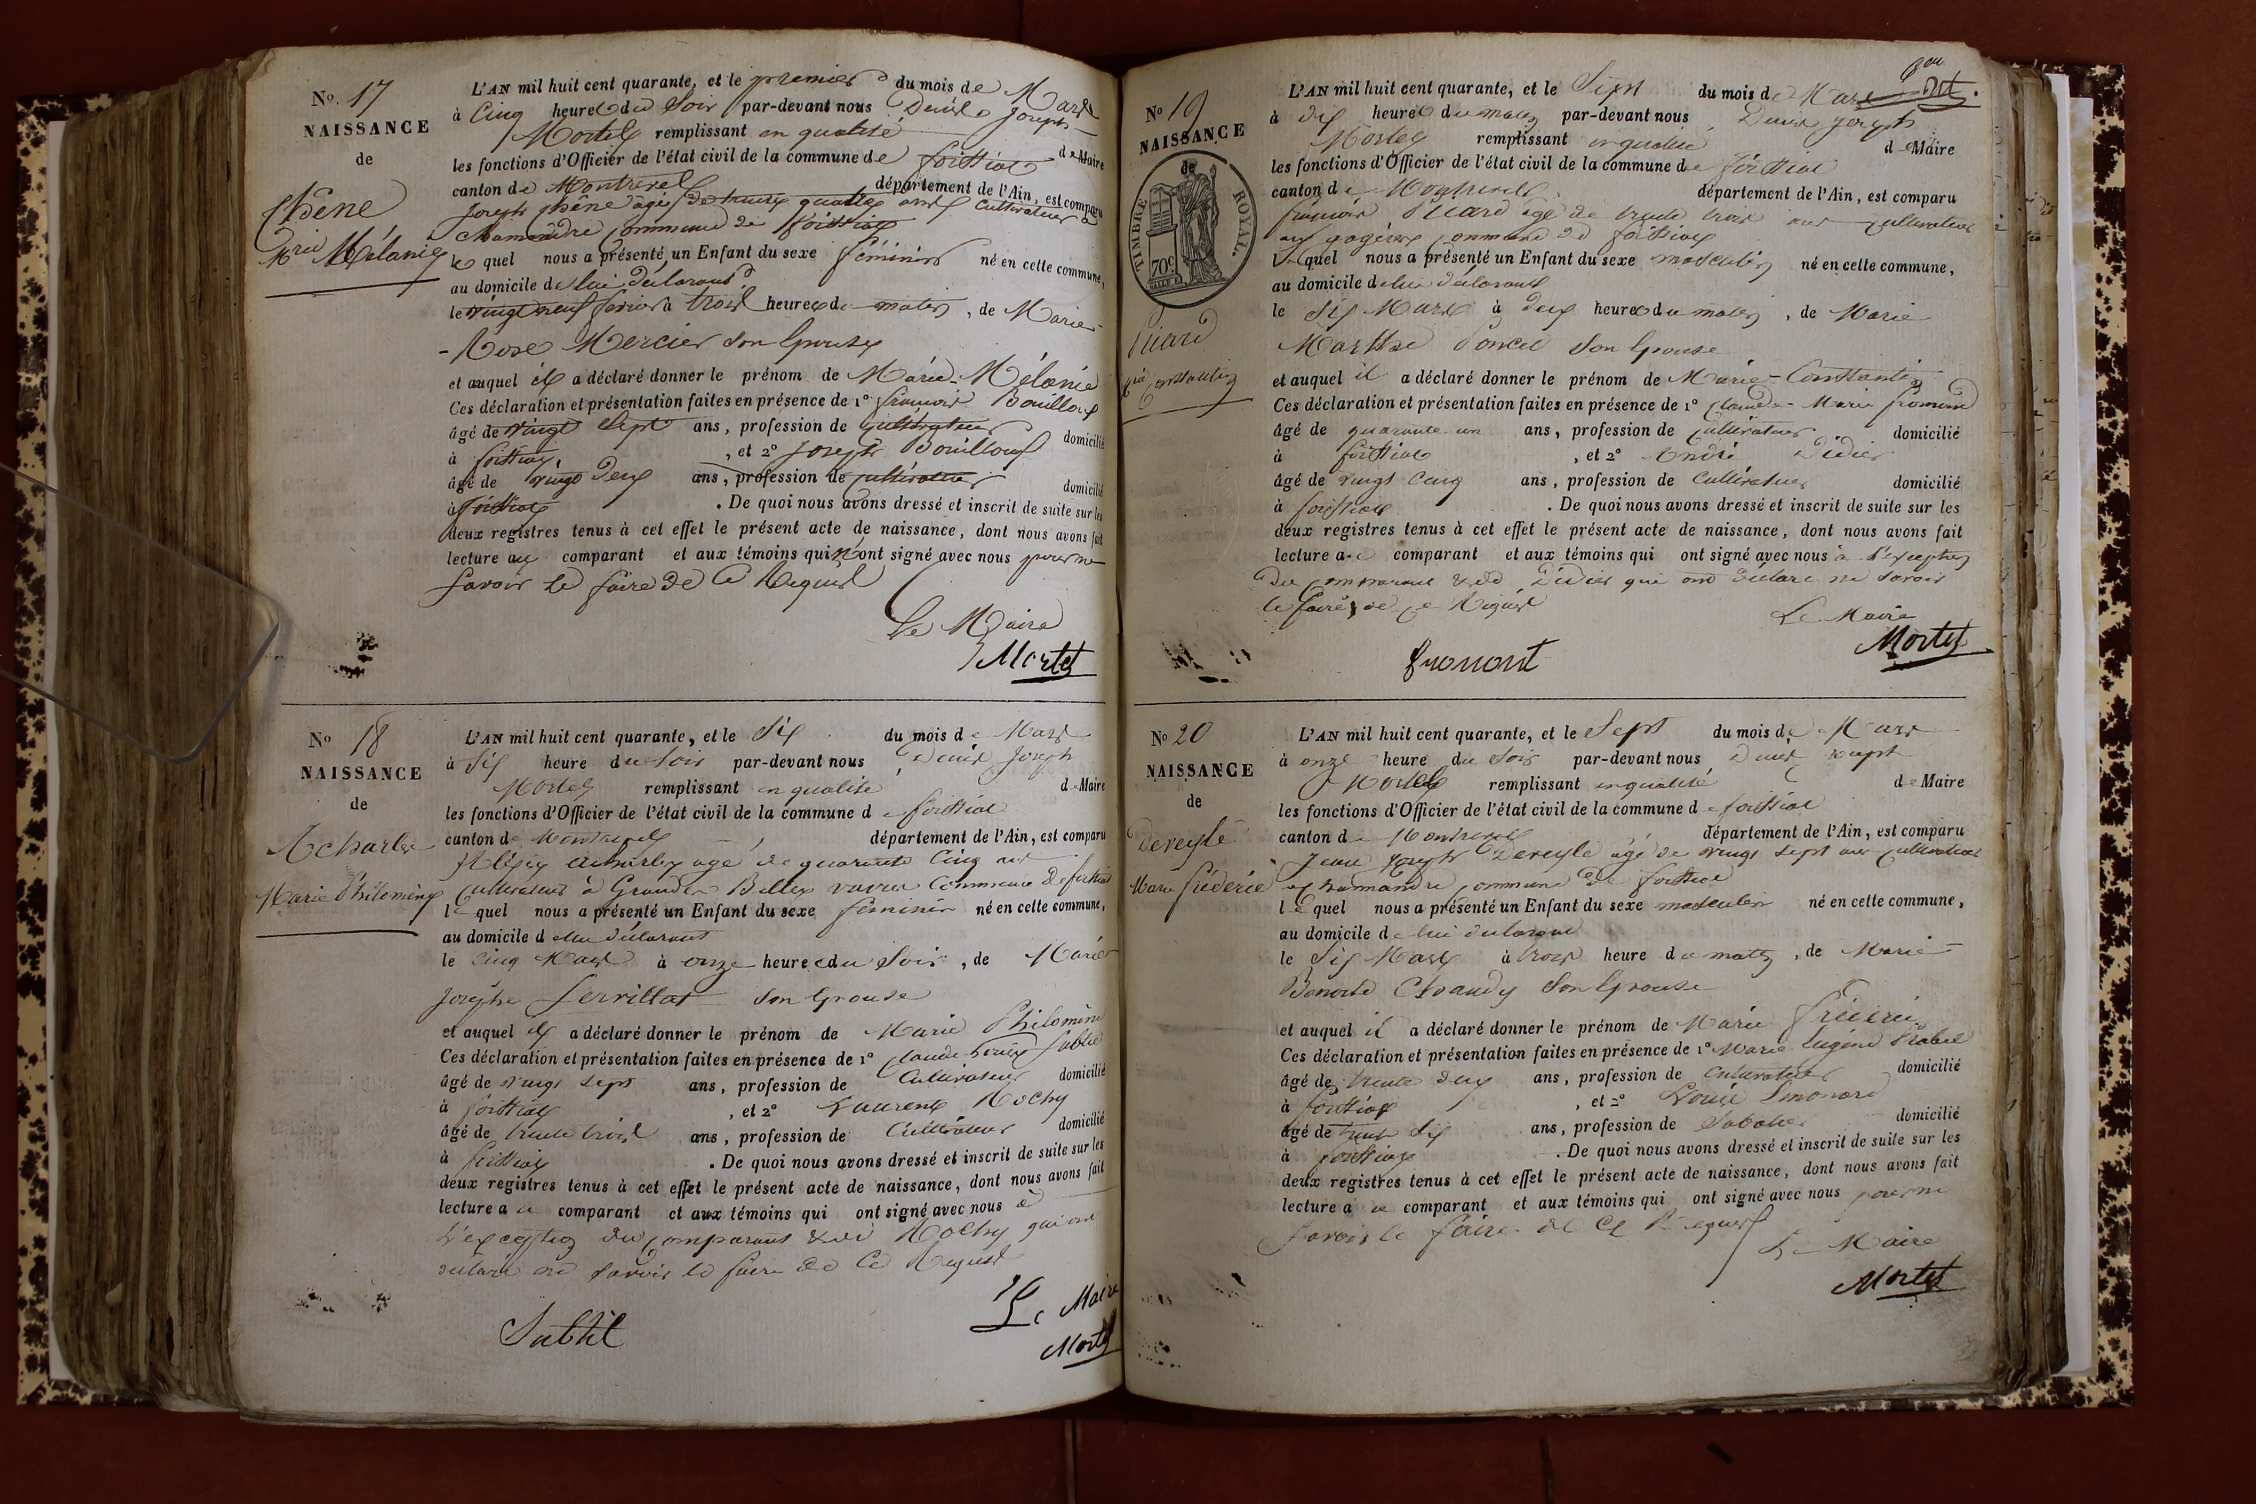 No. 17
NAISSANCE
de
Chêne
Mrie Mélanie
L'AN mil huit cent quarante, et le premier du mois de Mars
à Cinq heures du Soir par-devant nous Denis Joseph
Mortel remplissant en qualité de Maire
les fonctions d'Officier de l'état civil de la commune de foissiat
canton de Montrevel département de l'Ain, est comparu
Joseph Chêne âgé de trente quatre ans Cultivateur à
Chamandre commune de foissiat
le quel nous a présenté un Enfant du sexe féminin né en cette commune,
au domicile de lui déclarant
le vingt neuf fevrier à trois heures du matin, de Marie
-Rose Mercier son épouse
et auquel il a déclaré donner le prénom de Marie-Mélanie
Ces déclaration et présentation faites en présence de 1º françois Bouilloux
âgé de vingt sept ans, profession de cultivateur domicilié
à foissiat, et 2º Joseph Bouilloux
âgé de vingt deux ans, profession de cultivateur domicilié
à foissiat. De quoi nous avons dressé et inscrit de suite sur les
deux registres tenus à cet effet le présent acte de naissance, dont nous avons fait
lecture au comparant et aux témoins qui n'ont signé avec nous pour ne
savoir le faire de ce Requis
Le Maire
Mortel
No 18
NAISSANCE
de
Acharles
Marie Philomène
L'AN mil huit cent quarante, et le Six du mois de Mars
à Six heure du Soir par-devant nous Denis Joseph
Mortel remplissant en qualité de Maire
les fonctions d'Officier de l'état civil de la commune de foissiat
canton de Montrevel, département de l'Ain, est comparu
Alexis Acharles agé de quarante Cinq ans
Cultivateur à Grandes commune de foissiat
le quel nous a présenté un Enfant du sexe féminin né en cette commune,
au domicile de lui déclarant
le Cinq Mars à onze heures du Soir, de Marie
Josephe Servillat son épouse
et auquel il a déclaré donner le prénom de Marie Philomène
Ces déclaration et présentation faites en présence de 1º Claude Subtil
âgé de vingt sept ans, profession de Cultivateur domicilié
à foissiat, et 2º Laurent Rochy
âgé de trente trois ans, profession de Cultivateur domicilié
à foissiat. De quoi nous avons dressé et inscrit de suite sur les
deux registres tenus à cet effet le présent acte de naissance, dont nous avons fait
lecture au comparant et aux témoins qui ont signé avec nous à
l'exception du comparant & de Rochy qui ont
déclaré ne savoir le faire de Ce Requis
Le Maire
Subtil
Mortel
No 19
NAISSANCE
de
TIMBRE ROYAL.
70c
Picard
Mrie Constantin
L'AN mil huit cent quarante, et le Sept du mois de Mars
à dix heures du matin par-devant nous, Denis Joseph
Mortel remplissant en qualité de Maire
les fonctions d'Officier de l'état civil de la commune de foissiat
canton de Montrevel département de l'Ain, est comparu
françois Picard agé de trente trois ans cultivateur
commune de foissiat
le quel nous a présenté un Enfant du sexe masculin né en cette commune,
au domicile de lui déclarant
le Six Mars à deux heures du matin, de Marie
Marthe Poncet son épouse
et auquel il a déclaré donner le prénom de Marie-Constantin
Ces déclaration et présentation faites en présence de 1º Claude-Marie fromont
âgé de quarante un ans, profession de Cultivateur domicilié
à foissiat, et 2º André Didier
âgé de vingt cinq ans, profession de Cultivateur domicilié
à foissiat. De quoi nous avons dressé et inscrit de suite sur les
deux registres tenus à cet effet le présent acte de naissance, dont nous avons fait
lecture au comparant et aux témoins qui ont signé avec nous à l'exception
du comparant & de Didier qui ont déclaré ne savoir
le faire, de ce Requis
Le Maire
fromont
Mortel
No 20
NAISSANCE
de
Dereyle
Marie fréderic
L'AN mil huit cent quarante, et le Sept du mois de Mars
à onze heure du Soir par-devant nous, Denis Joseph
Mortel remplissant en qualité de Maire
les fonctions d'Officier de l'état civil de la commune de foissiat
canton de Montrevel département de l'Ain, est comparu
Jean Joseph Dereyle âgé de vingt sept ans cultivateur
à Chamandre commune de foissiat
le quel nous a présenté un Enfant du sexe masculin né en cette commune,
au domicile de lui déclarant
le Six Mars à trois heure du matin, de Marie
Benoite Chaudy son épouse
et auquel il a déclaré donner le prénom de Marie fréderic
Ces déclaration et présentation faites en présence de 1º Marie Eugène
âgé de trente deux ans, profession de Cultivateur domicilié
à foissiat, et 2º Louis Simonard
âgé de trente six ans, profession de Sabotier domicilié
à foissiat. De quoi nous avons dressé et inscrit de suite sur les
deux registres tenus à cet effet le présent acte de naissance, dont nous avons fait
lecture au comparant et aux témoins qui ont signé avec nous pour ne
savoir le faire de ce Requis
Le Maire
Mortel